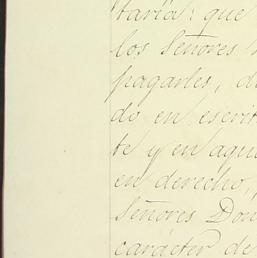 taria: que
los Señores
pagarles, d
do en escrit
te y en aqu
en derecho,
Señores Don
carácter de